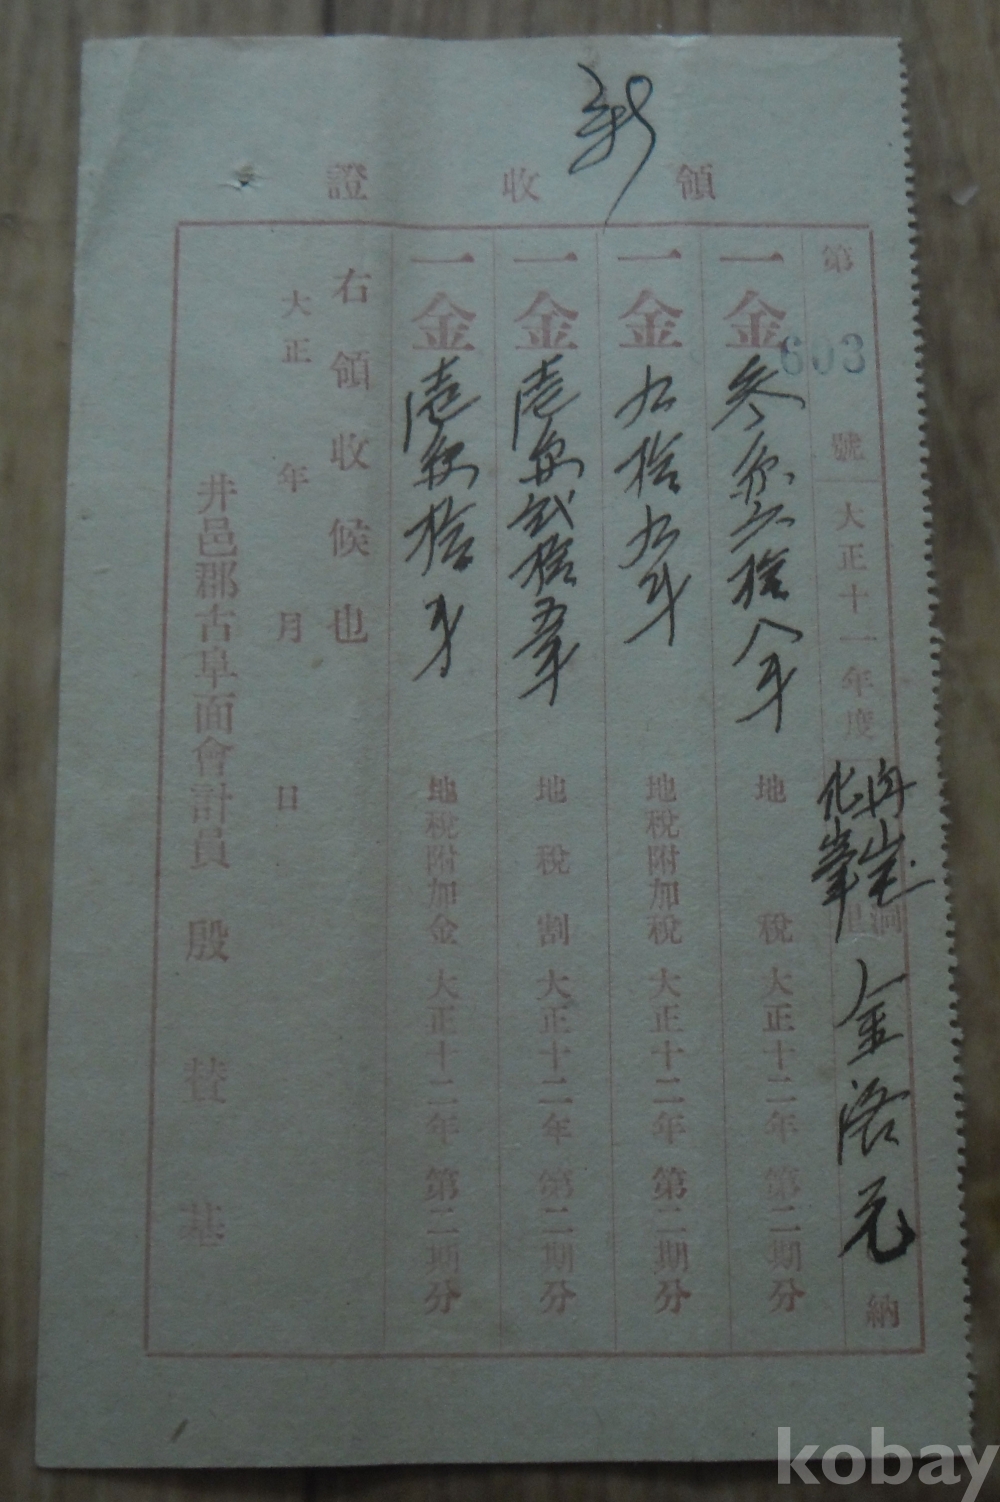 領收證
第603號 大正十一年度 內 化 洞里 金洛元 納
一金 参 拾八 地稅 大正十二年第二期分
一金 九拾九 地稅附加稅 大正十二年第二期分
一金 壱 弐拾五 地稅割 大正十二年第二期分
一金 壱 拾 地稅附加金 大正十二年第二期分
右領收候也
大正 年 月 日
井邑郡古阜面會計員 殷 基
kobay